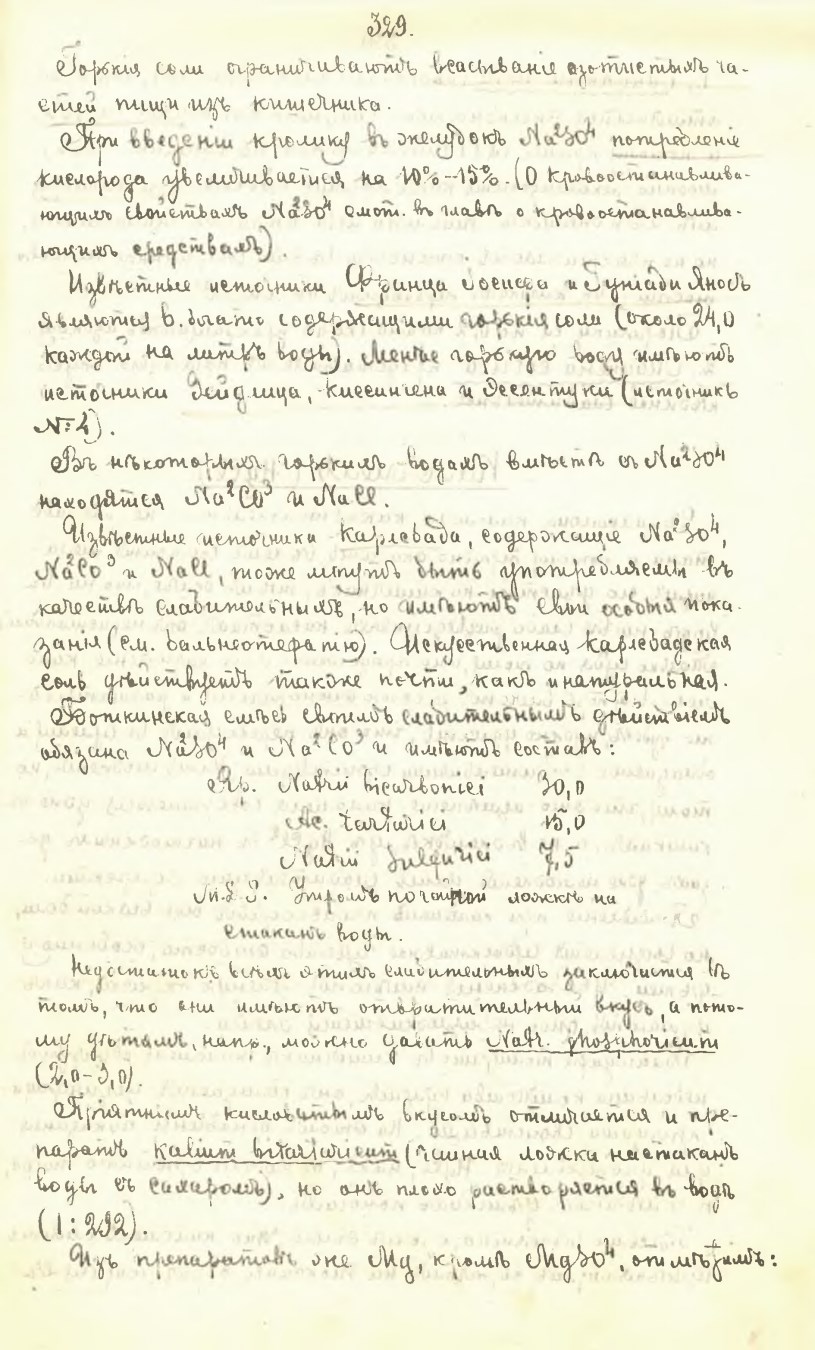 329.
Горькія соли ограничиваютъ всасываніе азотистыхъ ча-
стей пищи изъ кишечника.
При введеніи кролику въ желудокъ Na²SO⁴ потребленіе
кислорода увеличивается на 10%-15%. (О кровоостанавлива-
ющихъ свойствахъ Na²SO⁴ смот. въ главѣ о кровоостанавлива-
ющихъ средствахъ).
Извѣстные источники Франца Іосифа и Гуніади Яносъ
являются б. богато содержащими горькія соли (около 24,0
каждой на литръ воды). Менѣе горькую воду имѣютъ
источники Зейдлица, Киссингена и Эссентуки (источникъ
№ 4).
Въ нѣкоторыхъ горькихъ водахъ вмѣстѣ съ Na²SO⁴
находятся Na²CO³ и NaCl.
Извѣстные источники Карлсбада, содержащіе Na²SO⁴,
Na²CO³ и NaCl, тоже могутъ быть употребляемы въ
качествѣ слабительныхъ, но имѣютъ свои особыя пока-
занія (см. бальнеотерапію). Искусственная Карлсбадская
соль дѣйствуетъ также почти, какъ и натуральная.
Боткинская смѣсь своимъ слабительнымъ дѣйствіемъ
обязана Na²SO⁴ и Na²CO³ и имѣютъ составъ:
Rp. Natrii bicarbonici 30,0
Ac. tartarici 15,0
Natrii sulfurici 7,5
M.D.S. Утромъ по чайной ложкѣ на
стаканъ воды.
Недостатокъ всѣхъ этихъ слабительныхъ заключается въ
томъ, что они имѣютъ отвратительный вкусъ, а пото-
му дѣтямъ, напр., можно давать Natr. phosphoricum
(2,0-3,0).
Пріятнымъ кисловатымъ вкусомъ отличается и пре-
паратъ Kalium bitartaricum (чайная ложка на стаканъ
воды съ сахаромъ), но онъ плохо растворяется въ водѣ
(1:292).
Изъ препаратовъ же Mg, кромѣ MgSO⁴, отмѣтимъ: